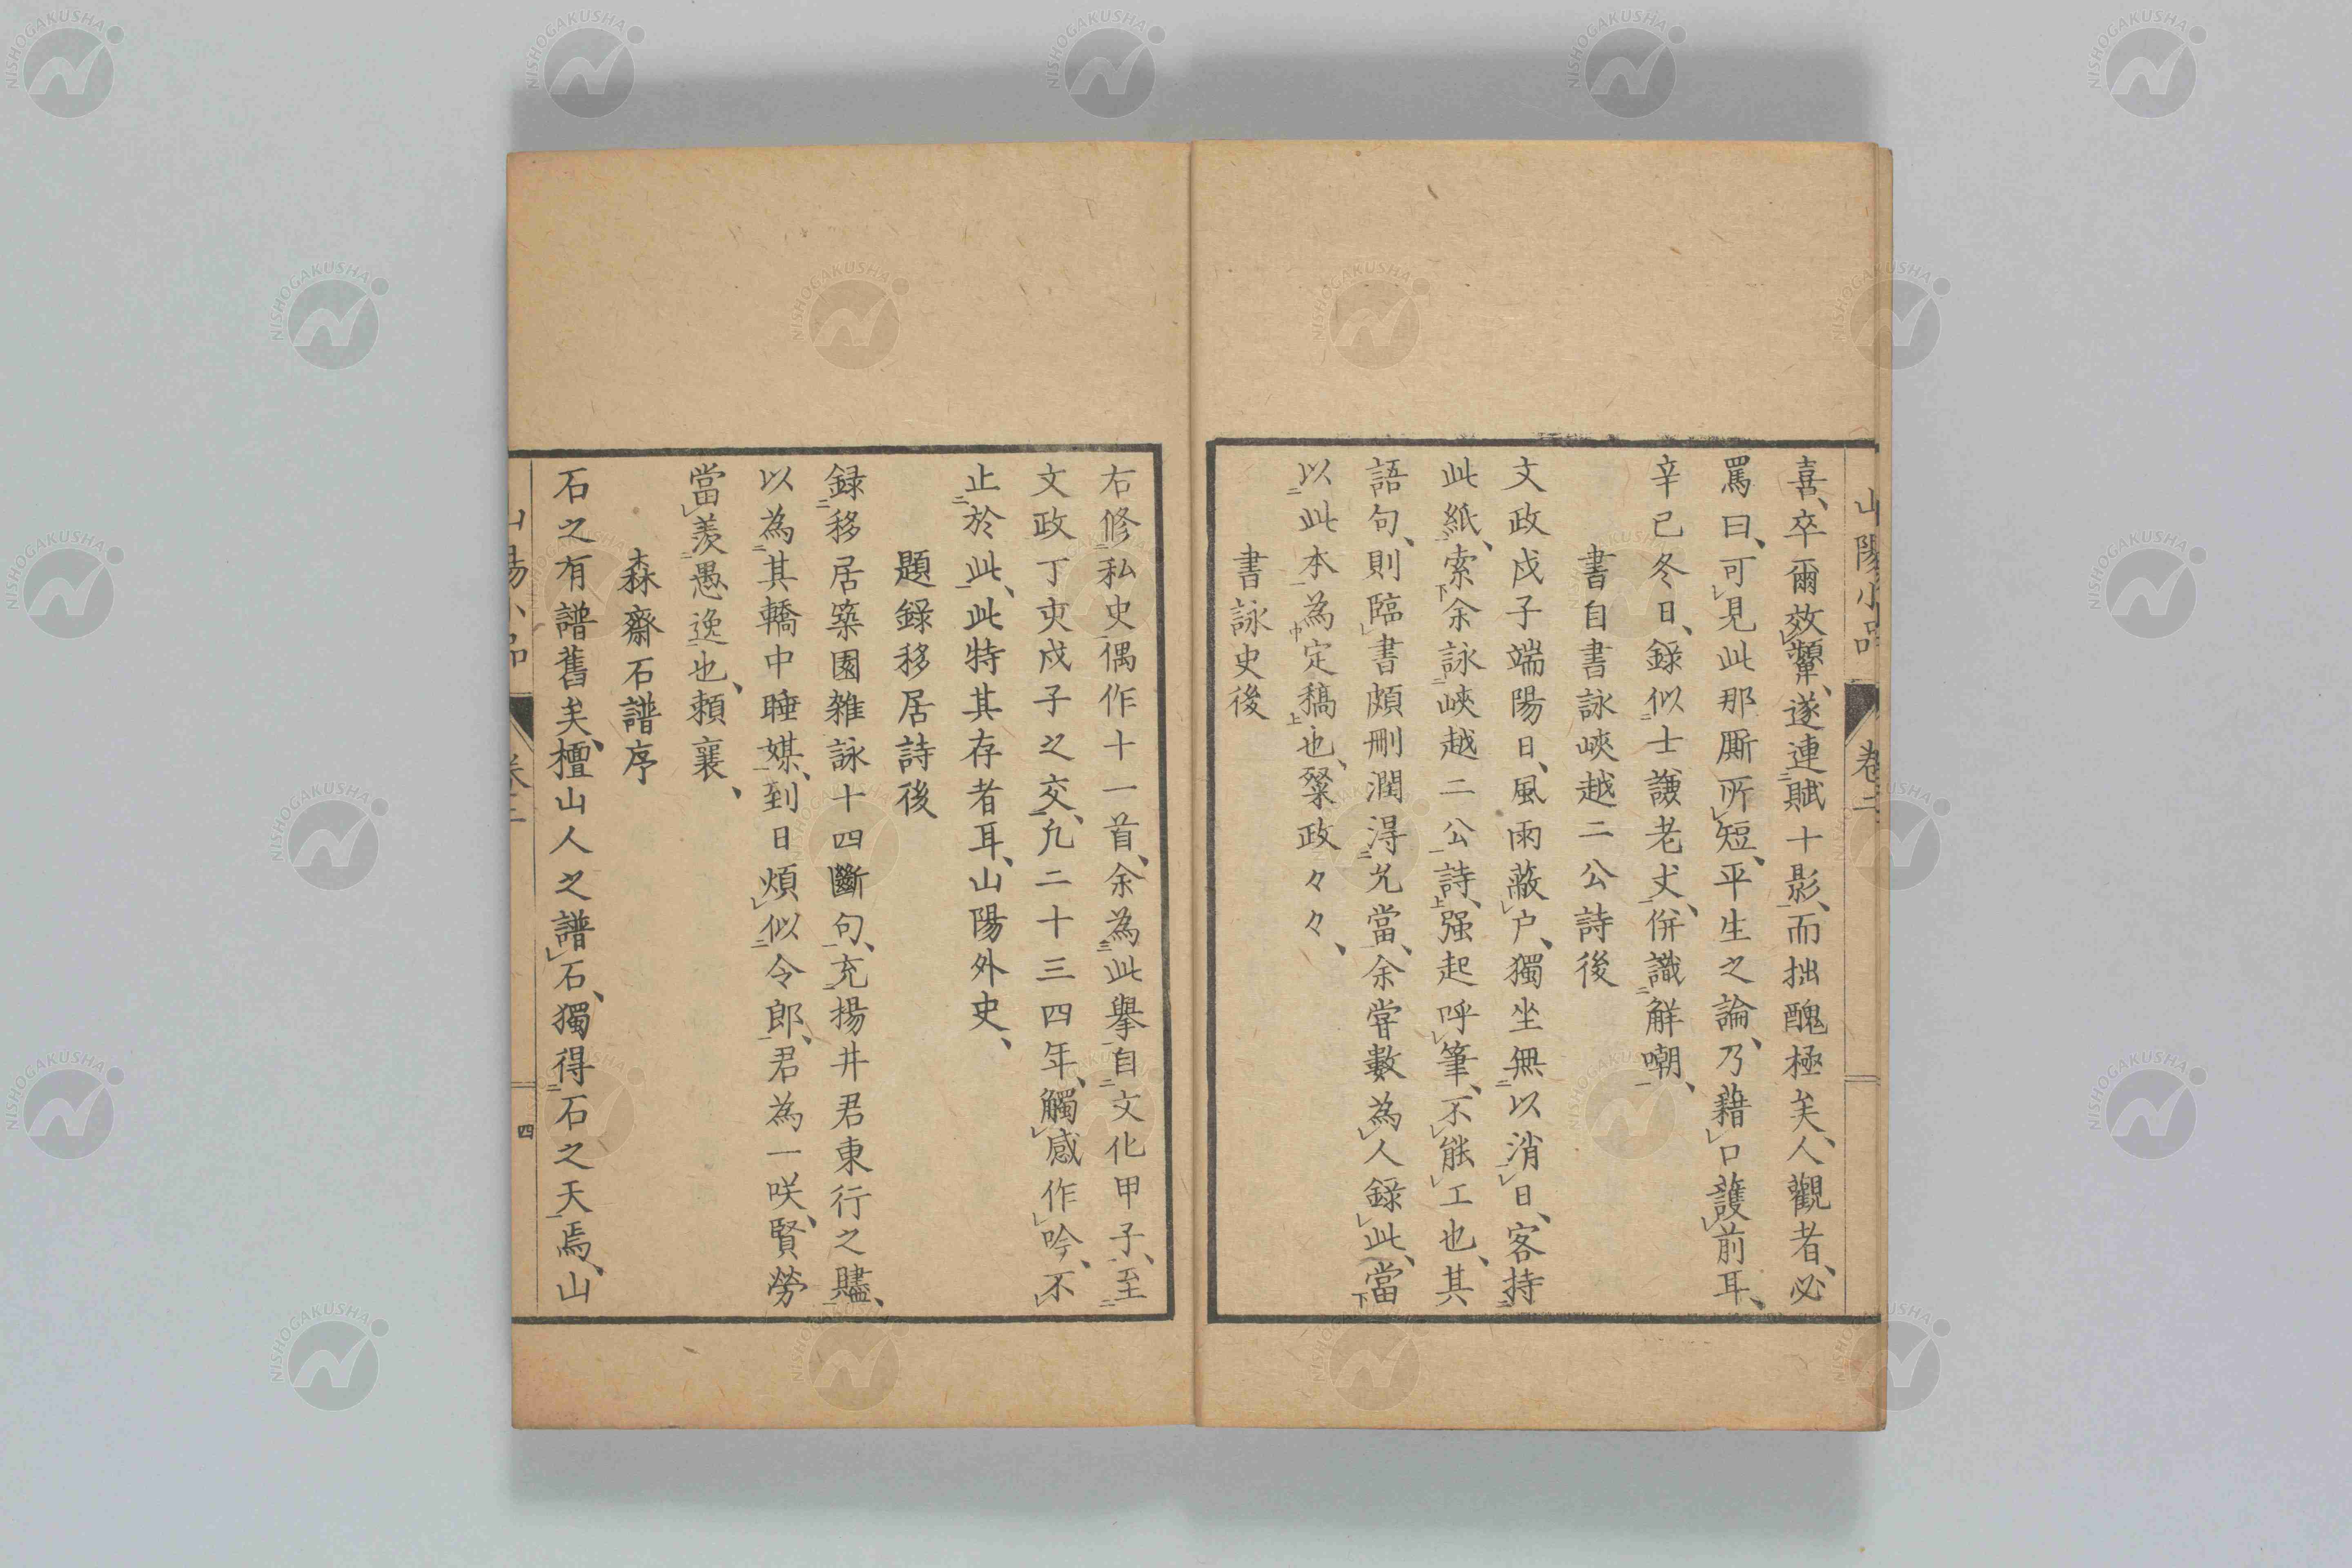 山陽小品 卷二
喜、卒爾效顰、遂連賦十影、而拙醜極矣、人觀者、必
罵曰、可見此那厮所短、平生之論、乃藉口護前耳、
辛已冬日、録似士謙老丈、併識觧嘲、
書自書詠峽越二公詩後
文政戊子端陽日、風雨蔽户、獨坐無以消日、客持
此紙、索余詠峽越二公詩、强起呼筆、不能工也、其
語句、則臨書頗刪潤得允當、余嘗數為人録此、當
以此本為定稿也、粲政々々、
書詠史後
右修私史偶作十一首、余為此擧自文化甲子、至
文政丁亥戊子之交、凢二十三四年、觸感作吟、不
止於此、此特其存者耳、山陽外史、
題録移居詩後
録移居築園雜詠十四斷句、充揚井君東行之贐、
以為其轎中睡媒、到日煩似令郎、君為一咲、賢勞
當羨愚逸也、頼襄、
森齋石譜序
石之有譜舊矣、檀山人之譜石、獨得石之天焉、山
四
NISHOGAKUSHA